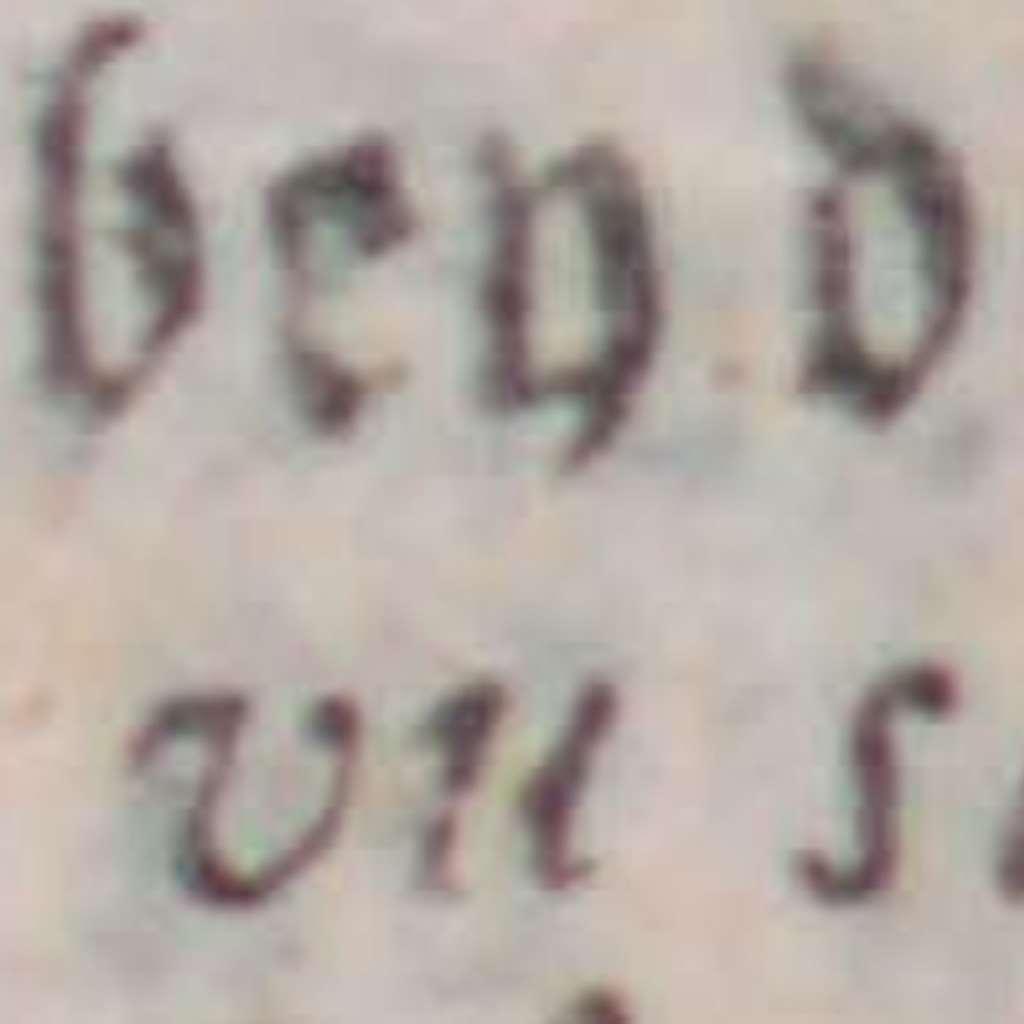 ben d
vn s